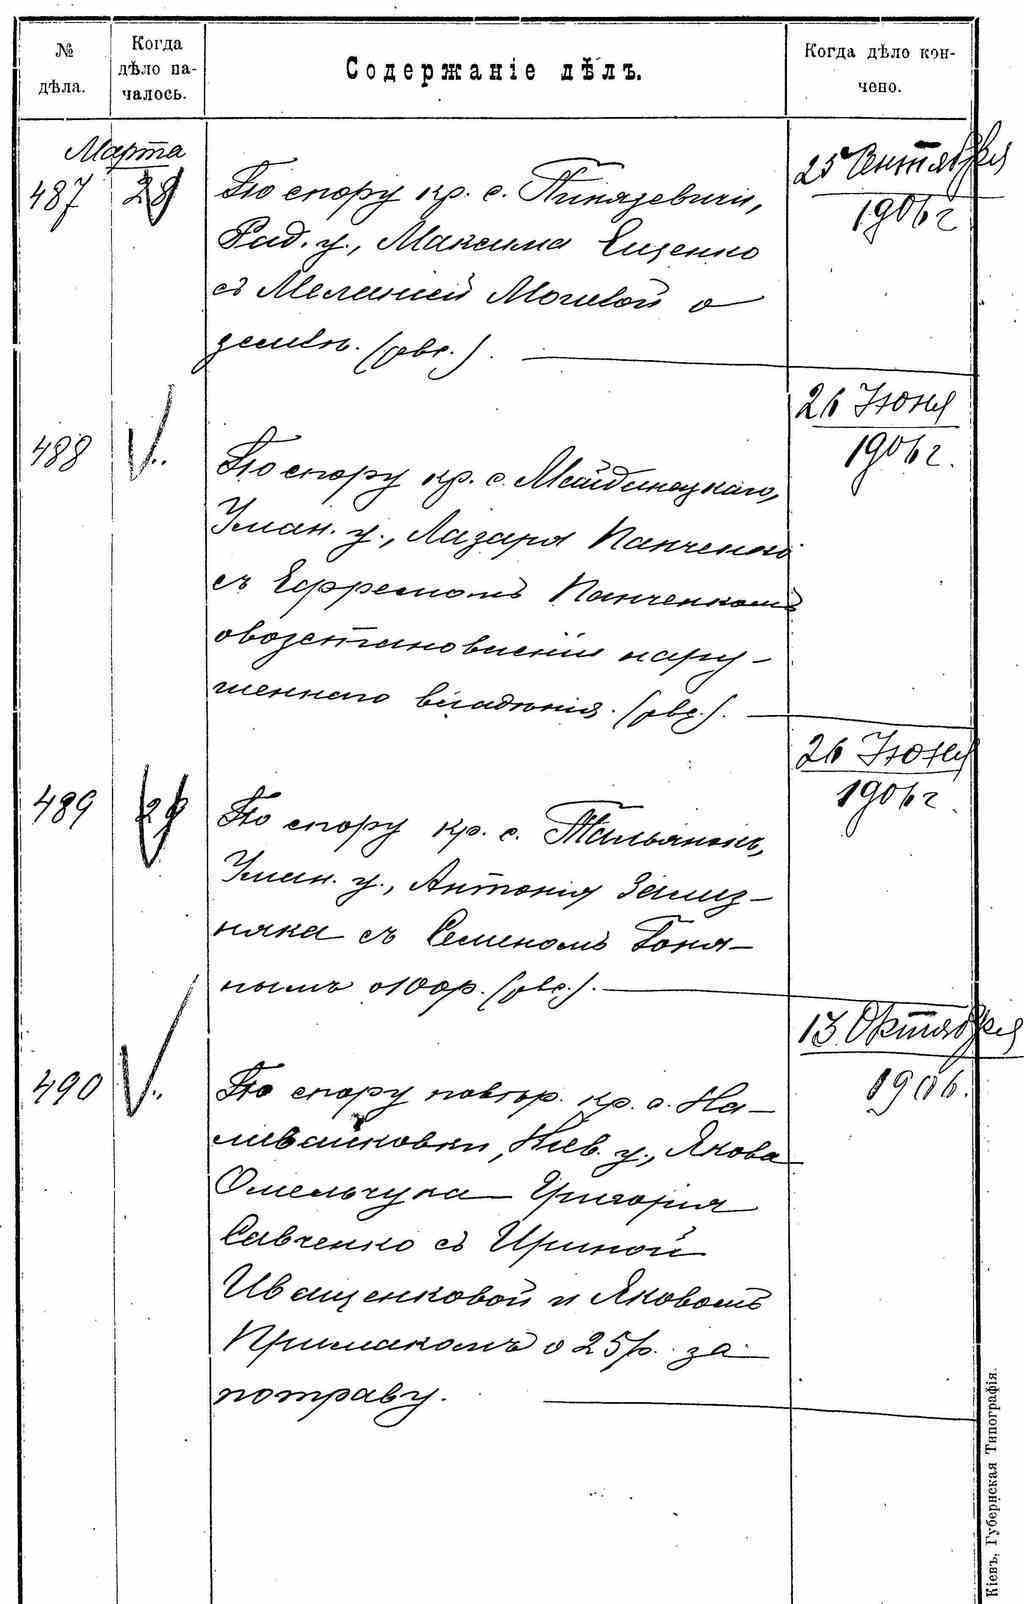 № дѣла.
Когда дѣло на-
чалось.
Содержаніе дѣлъ.
Когда дѣло кон-
чено.
Марта
487
28
По спору кр. с. Пинязевичи,
Рад. у., Максима Ещенко
съ Меланіей Могивой о
землѣ. (рвг.).
25 Сентября
1906 г
488
По спору кр. с. Майданецкаго,
Уман. у., Лазаря Панченко
съ Ефремомъ Панченкомъ
о возстановленіи нару-
шеннаго владѣнія. (рвг.).
26 Іюня
1906 г.
489
29
По спору кр. с. Тальянокъ,
Уман. у., Антонія Зализ-
няка съ Семеномъ Гоня-
нымъ о 100 р. (рвг.).
26 Іюня
1906 г.
490
По спору повѣр. кр. с. На-
ливайковки, Кіев. у., Якова
Омельчука Григорія
Савченко съ Ириной
Иващенковой и Яковомъ
Примакомъ о 25 р. за
потраву.
13 Октября
1906.
Кіевъ, Губернская Типографія.